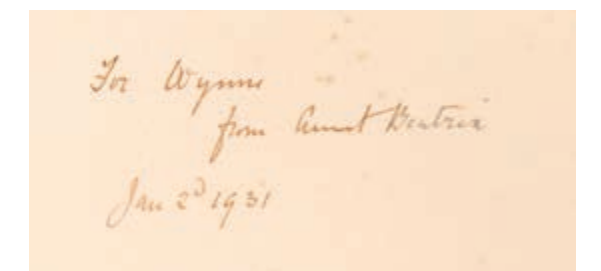 For Wynne
from Aunt Beatrix
Jan 2d 1931